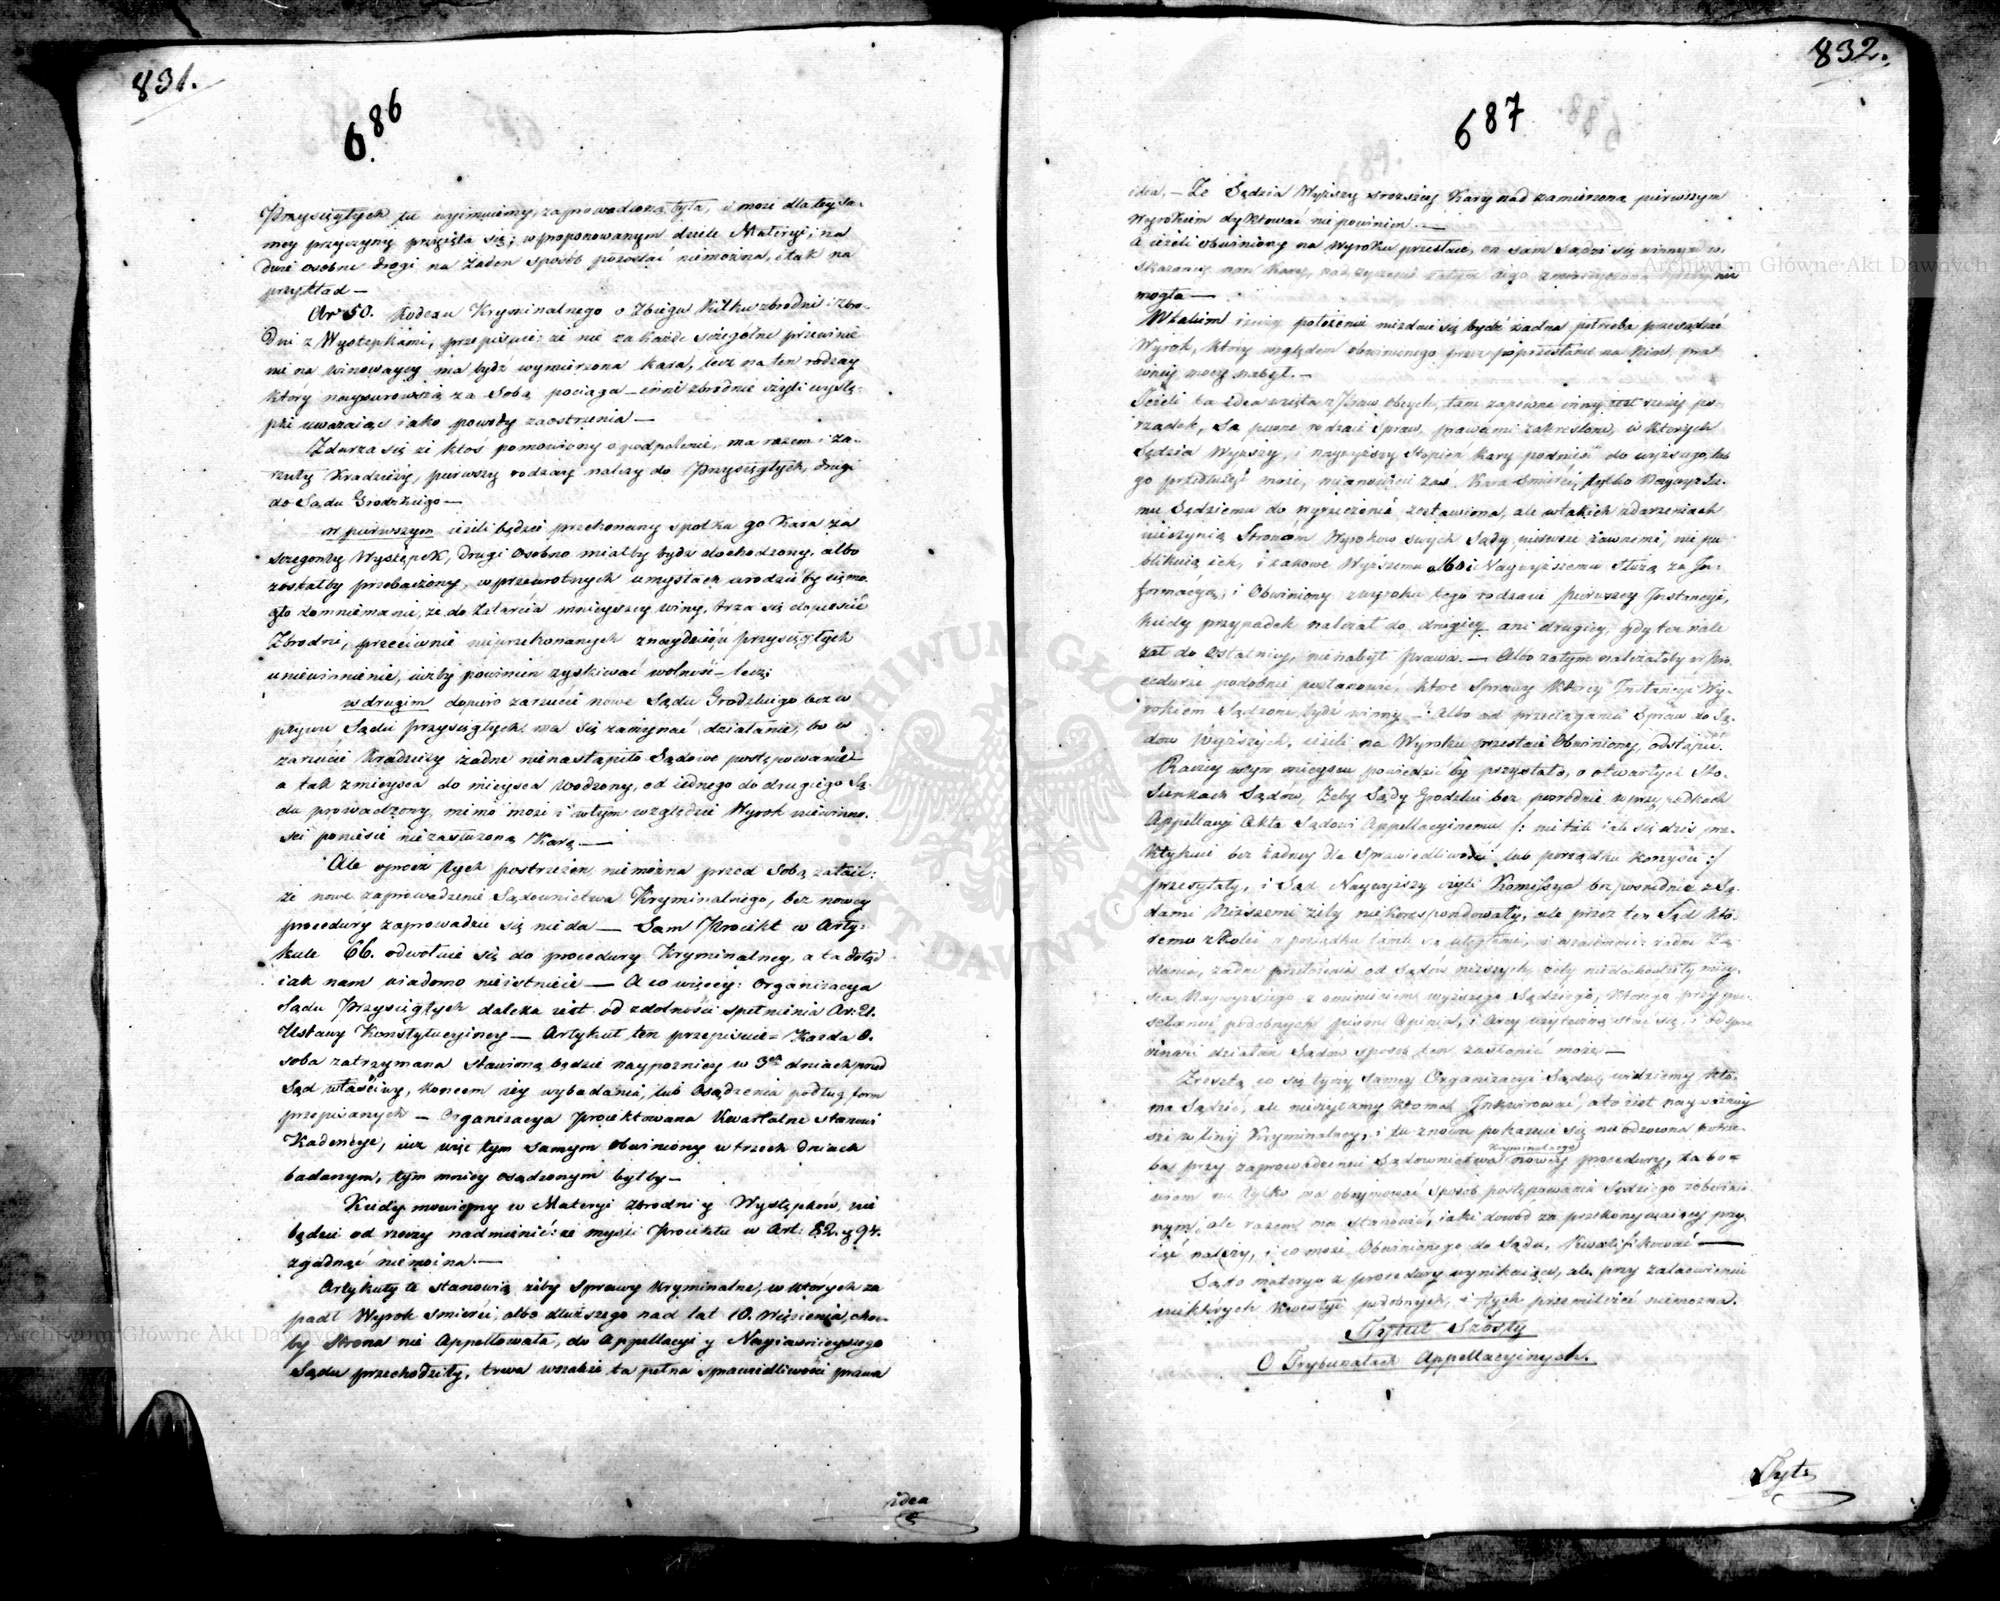 831.
686
Przysięgłych tu wyimuiemy, zaprowadzoną była, i może dla tey sa-
mey przyczyny przyięła się; w proponowanym dziele Materyi, na
dwie osobne drogi na żaden sposób pozostać niemożna, i tak na
przykład —
Art 50. Kodexu Kryminalnego o Zbiegu Kilku zbrodni i zbro-
dni z Występkami, przepisuie: że nie za każde szczególne przewinie
nie na winowaycę ma bydź wymierzona kara, lecz na ten rodzay
który naysurowszą za Sobą pociąga — inne zbrodnie czyli wystę-
pki uważaiąc iako powody zaostrzenia —
Zdarza się że ktoś pomowiony o podpalenie, ma razem i za-
rzuty Kradzieży, pierwszy rodzay należy do Przysięgłych, drugi
do Sądu Grodzkiego —
w pierwszym ieżeli będzie przekonany spotka go Kara za
szczegulny Występek, drugi osobno miałby bydź dochodzony, albo
zostałby przebaczony, w przewrotnych umysłach urodzić by się mo-
gło domniemanie, że do zatarcia mnieyszey winy, trza się dopuścić
Zbrodni, przeciwnie nieprzekonanych znaydzie się przysięgłych
uniewinnienie, iużby powinien zyskiwać wolność — lecz:
w drugim dopiero zarzucie nowe Sądu Grodzkiego bez w
pływu Sądu przysięgłych ma się zaczynać działanie, bo w
zarzucie Kradzieży żadne nienastąpiło Sądowe postępowanie
a tak z mieysca do mieysca wodzony, od iednego do drugiego Są-
du prowadzony, mimo może i w tym względzie Wyrok niewinno-
ści poniesie niezasłużoną Karę —
Ale oprocz tych postrzeżeń niemożna przed Sobą zataić:
że nowe zaprowadzenie Sądownictwa Kryminalnego, bez nowey
procedury zaprowadzić się nieda — Sam Proiekt w Arty-
kule 66. odwołuie się do procedury Kryminalney, a ta dotąd
iak nam wiadomo nieistnieie — A co więcey: Organizacya
Sądu Przysięgłych daleka iest od zdolności spełnienia Art: 21.
Ustawy Konstytucyiney — Artykuł ten przepisuie = Każda O-
soba zatrzymana stawioną będzie naypozniey w 3ch dniach przed
Sąd właściwy, koncem iey wybadania, lub Osądzenia podług form
przepisanych — Organizacya Proiektowana Kwartalne stanowi
Kadencye, iuż więc tym samym Obwiniony w trzech dniach
badanym, tym mniey osądzonym byłby —
Kiedy mowiemy w Materyi Zbrodni y Występków, nie
będzie od rzeczy nadmienić: że myśli Proiektu w Art: 82. y 94.
zgadnąć niemożna. —
Artykuły te stanowią żeby Sprawy Kryminalne, w których za
padł Wyrok śmierci, albo dłuższego nad lat 10. Więzienia, choć-
by Strona nie Appellowała, do Appellacyi y Nayiaśnieyszego
Sądu przechodziły, trwa wszakże ta pełna sprawiedliwości prawa
idea
832.
687
idea, — Że Sędzia Wyższy sroższey Kary nad zamierzoną pierwszym
Wyrokiem dyktować nie powinien. —
A ieżeli obwiniony na Wyroku przestaie, on sam Sądzi się winnym w
skazaney mu Kary,
mogła —
W takim rzeczy położeniu niezdaie się bydź żadna potrzeba przesądzać
Wyrok, który względem obwinionego przez poprzestanie na nim, pra
wney mocy nabył. —
Jeżeli ta idea wzięta z Praw obcych, tam zapewne inny iest rzeczy po-
rządek, Są pewne rodzaie Spraw, prawami zakreślone, w których
Sędzia Wyższy, i naywyższy Stopień kary podnieść do wyższego, lub
go przedłużyć może, mianowicie zaś Kara śmierci, tylko Naywyższe-
mu Sędziemu do wyrzeczenia zostawiona, ale w takich zdarzeniach
nieczynią Stronom Wyroków swych Sądy pierwsze iawnemi, nie pu-
blikuią ich, i takowe Wyższemu albo i Naywyższemu Służą za In-
formacyą, i Obwiniony z wyroku tego rodzaiu pierwszey Instancyi,
kiedy przypadek należał do drugiey ani drugiey, gdy ten nale
żał do ostatniey, nienabył prawa. — Albo zatym należałoby w Pro-
cedurze podobnie postanowić, które Sprawy którey Instancyi Wy-
rokiem Sądzone bydź winny — Albo od przeciągania Spraw do Są-
dów Wyższych, ieżeli na Wyroku przestaie Obwiniony, odstąpić.
Raczey w tym mieyscu powiedzieć by przystało, o otwartych Sto-
sunkach Sądów, Żeby Sądy Grodzkie bez pośrednie w przypadkach
Appellacyi Akta Sądowi Appellacyinemu /: nie tak iak się dziś pra-
ktykuie bez żadney dla Sprawiedliwości lub porządku korzyści :/
przesyłały, i Sąd Naywyższy czyli Kommissya bezpośrednie z Są-
dami Niższemi żeby niekorespondowały, ale przez ten Sąd któ-
remu z kolei i porządku tamte są uległemi,
dania, żadne przełożenia od Sądów niższych, żeby niedochodziły miey-
sca Naywyższego z ominieniem wyższego Sędziego, którego przy prze-
słaniu podobnych pism Opinia,
działań Sądów sposób ten zasłonić może —
Zresztą co się tyczy Samey Organizacyi Sądu, widziemy kto
ma Sądzić, ale nieczytamy kto ma Inkwirować, a to iest nayważniey
sze w linij Kryminalney, i tu znowu pokazuie się nieodzowna potrze-
ba, przy zaprowadzeniu Sądownictwa Kryminalnego nowey procedury, ta bo-
wiem nie tylko ma obeymować sposób postępowania Sędziego z obwinio
nym, ale razem ma stanowić, iaki dowód za przekonywaiący przy
iąć należy, i co może Obwinionego do Sądu, kwalifikować —
Są to materye z procedury wynikaiące, ale przy załatwieniu
niektórych kwestyi podobnych, i tych przemilczeć niemożna.
Tytuł Szósty
O Trybunałach Appellacyinych.
Tytu